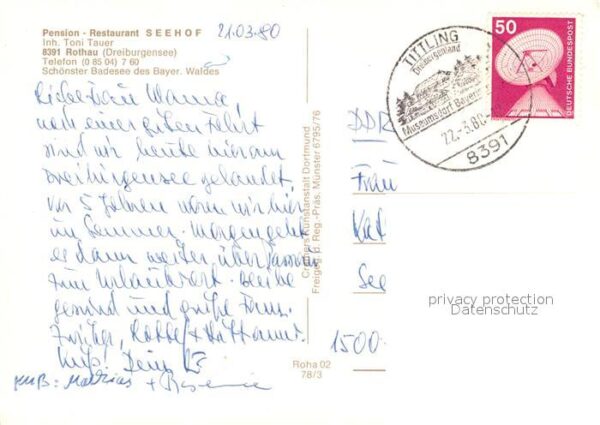 Pension - Restaurant SEEHOF
Inh. Toni Tauer
8391 Rothau (Dreiburgensee)
Telefon (0 85 04) 7 60
Schönster Badesee des Bayer. Waldes
21.03.80
nach einer guten Fahrt
sind wir heute hier am
Dreiburgensee gelandet,
vor 5 Jahren waren wir hier
im Sommer. Morgen geht
es dann weiter über Passau
zum Urlaubsort. Bleibe
gesund und grüße
Kuß! Dein
Kuß: Mathias +
Cramers Kunstanstalt Dortmund
Freigeg. d. Reg.-Präs. Münster 6795/76
Roha 02
78/3
TITTLING
Dreiburgenland
Museumsdorf Bayer.
22.-3.80
8391
50
DEUTSCHE BUNDESPOST
DDR
Frau
Kat
See
1500
privacy protection
Datenschutz